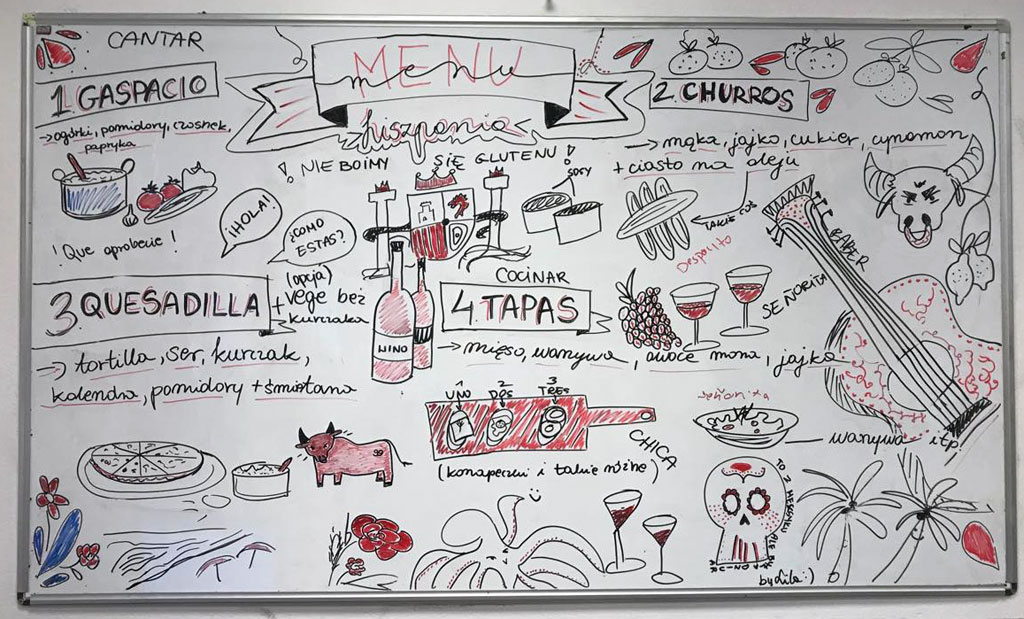 CANTAR
MENU
menu
hiszpania
1. GASPACIO
→ ogórki, pomidory, czosnek,
papryka
2. CHURROS
→ mąka, jajko, cukier, cynamon
+ ciasto na oleju
! NIE BOIMY SIĘ GLUTENU !
SOSY
TAKIE COŚ
Despacito
¡HOLA!
¿COMO
ESTAS?
! Que aprobecie !
BABER
SEÑORITA
3. QUESADILLA
+ (opcja)
vege bez
kurczaka
→ tortilla, ser, kurczak,
kolendra, pomidory + śmietana
WINO
COCINAR
4. TAPAS
→ mięso, warzywa, owoce morza, jajko
1 2 3
UNO DOS TRES
CHICA
(kanapeczki i takie różne)
señorita
warzywa itp.
TO Z MEKSYKU ALE
by Lila :)